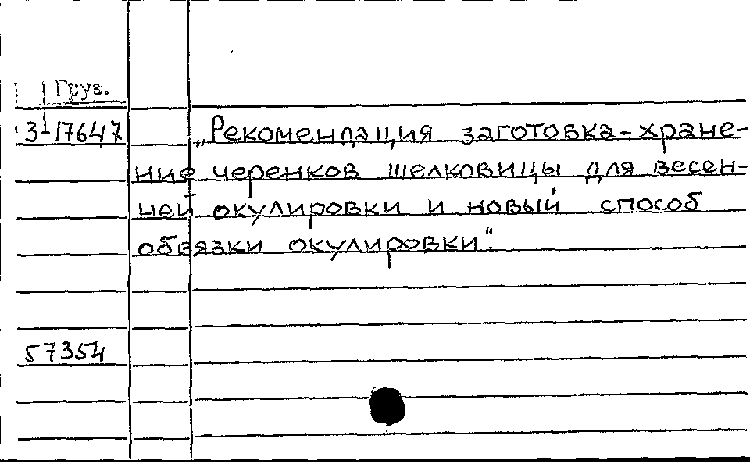 Груз.
3-17647
„Рекомендация заготовка-хране-
ние черенков шелковицы для весен-
ней окулировки и новый способ
обвязки окулировки“.
57354